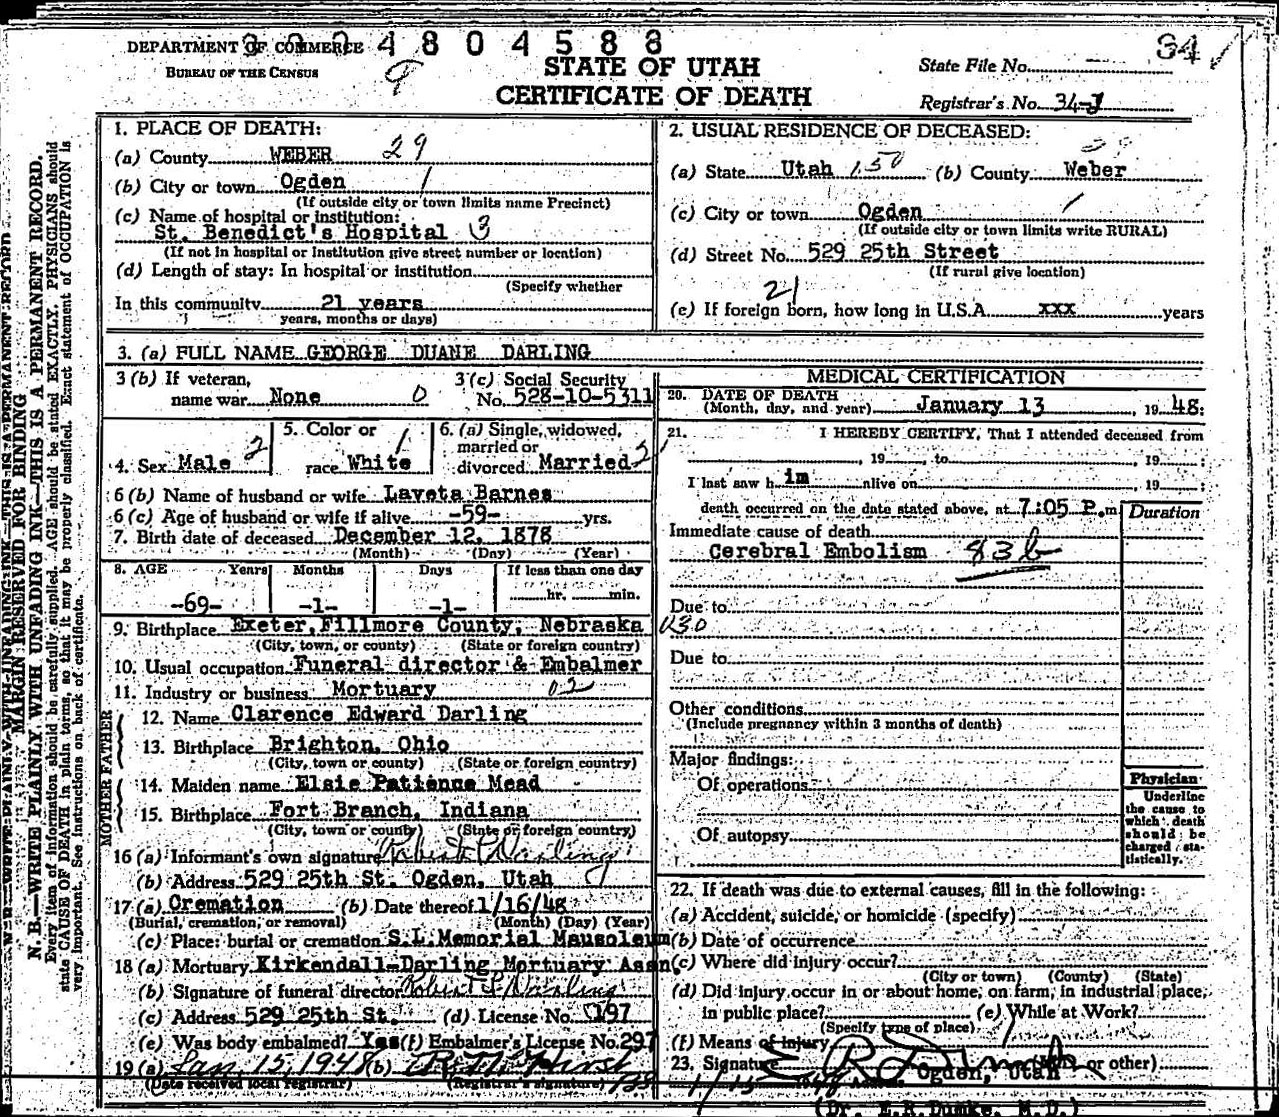 DEPARTMENT OF COMMERCE
BUREAU OF THE CENSUS
4804586
STATE OF UTAH
CERTIFICATE OF DEATH
34
State File No.
Registrar's No. 34-J
1. PLACE OF DEATH:
(a) County WEBER 29
(b) City or town Ogden 1
(If outside city or town limits name Precinct)
(c) Name of hospital or institution:
St. Benedict's Hospital 3
(If not in hospital or Institution give street number or location)
(d) Length of stay: In hospital or institution
(Specify whether
In this community 21 years
years, months or days)
2. USUAL RESIDENCE OF DECEASED:
(a) State Utah 150 (b) County Weber
(c) City or town Ogden
(If outside city or town limits write RURAL)
(d) Street No. 529 25th Street
(If rural give location)
21
(e) If foreign born, how long in U.S.A. xxx years
3. (a) FULL NAME GEORGE DUANE DARLING
3 (b) If veteran,
name war None 0
3 (c) Social Security
No. 528-10-5311
4. Sex Male 2
5. Color or
race White 1
6. (a) Single, widowed,
married or
divorced Married 2
6 (b) Name of husband or wife Laveta Barnes
6 (c) Age of husband or wife if alive -59- yrs.
7. Birth date of deceased December 12, 1878
(Month) (Day) (Year)
8. AGE Years Months Days If less than one day
hr. min.
-69- -1- -1-
9. Birthplace Exeter, Fillmore County, Nebraska
(City, town, or county) (State or foreign country)
10. Usual occupation Funeral director & Embalmer
11. Industry or business Mortuary 02
FATHER
12. Name Clarence Edward Darling
13. Birthplace Brighton, Ohio
(City, town or county) (State or foreign country)
MOTHER
14. Maiden name Elsie Patience Mead
15. Birthplace Fort Branch, Indiana
(City, town or county) (State or foreign country)
16 (a) Informant's own signature Robert L Darling
(b) Address 529 25th St. Ogden, Utah
17 (a) Cremation (b) Date thereof 1/16/48
(Burial, cremation, or removal) (Month) (Day) (Year)
(c) Place: burial or cremation S.L. Memorial Mausoleum
18 (a) Mortuary Kirkendall-Darling Mortuary Assn.
(b) Signature of funeral director Robert L Darling
(c) Address 529 25th St. (d) License No. 197
(e) Was body embalmed? Yes (f) Embalmer's License No. 297
19 (a) Jan, 15, 1948 (b)
(Date received local registrar) (Registrar's signature)
MEDICAL CERTIFICATION
20. DATE OF DEATH
(Month, day, and year) January 13, 1948:
21. I HEREBY CERTIFY, That I attended deceased from
, 19 , to , 19 ;
I last saw h im alive on , 19 ;
death occurred on the date stated above, at 7:05 P. m
Duration
Immediate cause of death
Cerebral Embolism 83b
Due to
030
Due to
Other conditions
(Include pregnancy within 3 months of death)
Major findings:
Of operations
Of autopsy
Physician
Underline
the cause to
which death
should be
charged sta-
tistically.
22. If death was due to external causes, fill in the following:
(a) Accident, suicide, or homicide (specify)
(b) Date of occurrence
(c) Where did injury occur?
(City or town) (County) (State)
(d) Did injury occur in or about home, on farm, in industrial place,
in public place? (e) While at Work?
(Specify type of place)
(f) Means of injury
23. Signature E R Dumke or other)
Address Ogden, Utah
(Dr. E.R. Dumke, M.D.)
MARGIN RESERVED FOR BINDING
N. B.—WRITE PLAINLY, WITH UNFADING INK—THIS IS A PERMANENT RECORD.
Every item of information should be carefully supplied. AGE should be stated EXACTLY. PHYSICIANS should
state CAUSE OF DEATH in plain terms, so that it may be properly classified. Exact statement of OCCUPATION is
very important. See instructions on back of certificate.